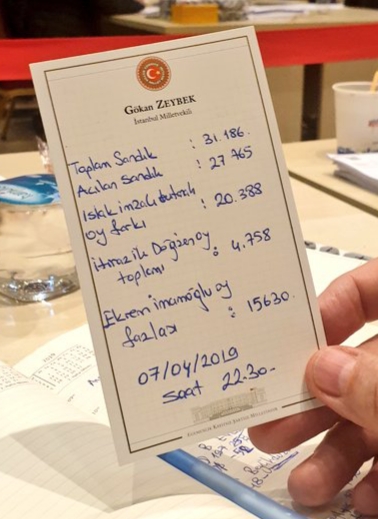 Gökan ZEYBEK
İstanbul Milletvekili
Toplam Sandık : 31.186.
Açılan Sandık : 27 765
Islak imzalı tutanak
oy farkı : 20.388
itirazlı Değişen oy
toplamı : 4.758
Ekrem imamoğlu oy
fazlası : 15630.
07/04/2019
saat 22.30-